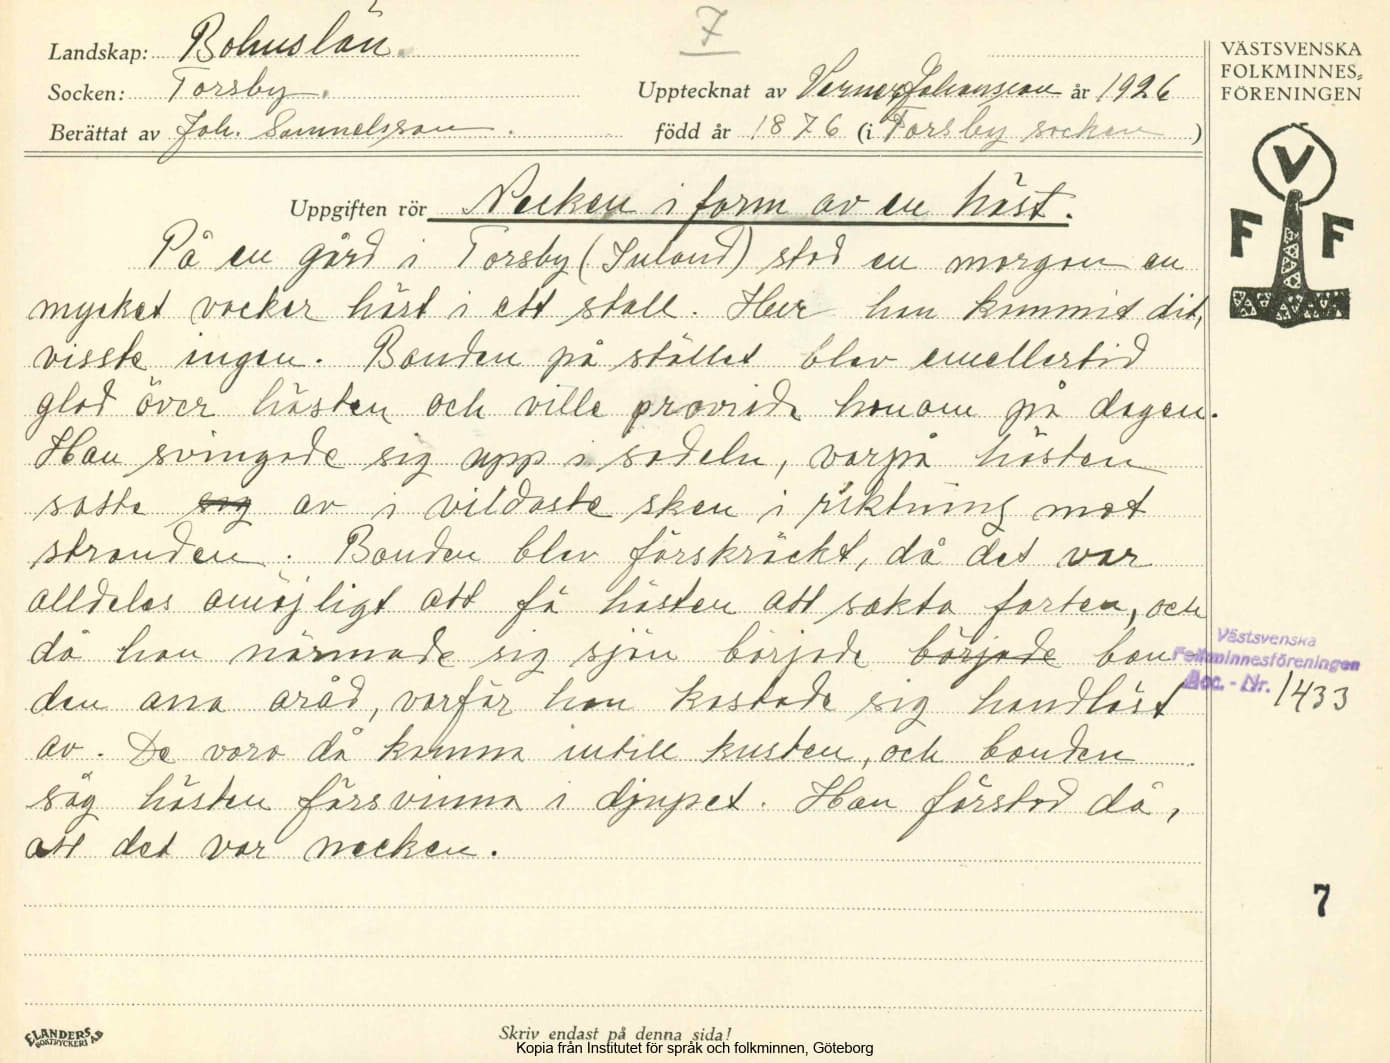 7
Landskap: Bohuslän.
Socken: Torsby.
Upptecknat av Verner Johansson år 1926
Berättat av Joh. Samuelsson.
född år 1876 (i Torsby socken)
VÄSTSVENSKA
FOLKMINNES-
FÖRENINGEN
V
F F
Uppgiften rör Necken i form av en häst.
På en gård i Torsby (Inland) stod en morgon en
mycket vacker häst i ett stall. Hur han kommit dit,
visste ingen. Bonden på stället blev emellertid
glad över hästen och ville provrida honom på dagen.
Han svingade sig upp i sadeln, varpå hästen
satte sig av i vildaste sken i riktning mot
stranden. Bonden blev förskräckt, då det var
alldeles omöjligt att få hästen att sakta farten, och
då han närmade sig sjön började började bon
den ana oråd, varför han kastade sig handlöst
av. De voro då komna intill kusten, och bonden
såg hästen försvinna i djupet. Han förstod då,
att det var necken.
Västsvenska
Folkminnesföreningen
Acc. - Nr. 1433
7
ELANDERS
BOKTRYCKERI A.B
Skriv endast på denna sida!
Kopia från Institutet för språk och folkminnen, Göteborg